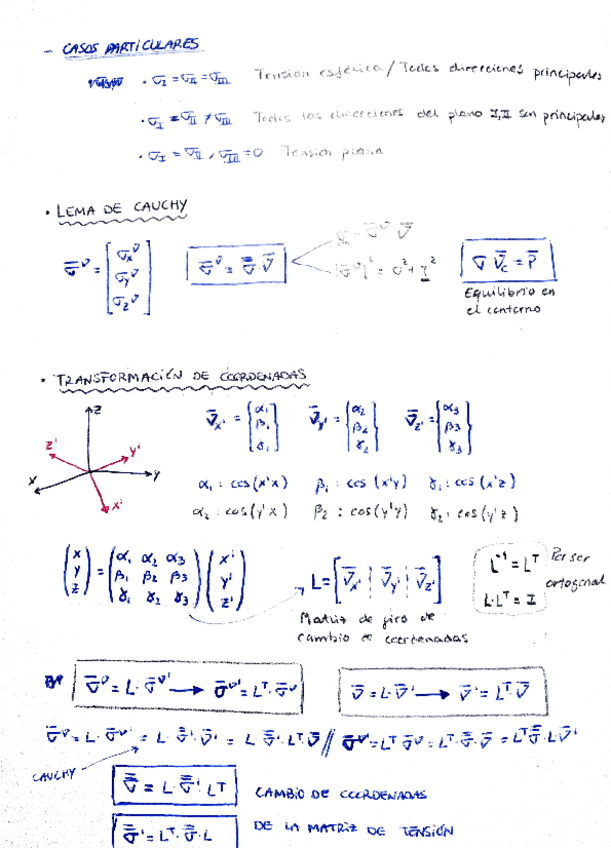 - CASOS PARTICULARES
· σ_I = σ_II = σ_III Tensión esférica / Todas direcciones principales
· σ_I = σ_II ≠ σ_III Todas las direcciones del plano I,II son principales
· σ_I = σ_II, σ_III = 0 Tensión plana
· LEMA DE CAUCHY
σ̄^ν = [σ_x^ν σ_y^ν σ_z^ν] σ̄^ν = σ̿·ν̄ σ = σ̄^ν ν̄ |σ̄^ν|² = σ² + τ² σ ν̄_c = P̄
Equilibrio en
el contorno
· TRANSFORMACIÓN DE COORDENADAS
z
z' y'
x y
x'
ν̄_x' = {α₁ β₁ γ₁} ν̄_y' = {α₂ β₂ γ₂} ν̄_z' = {α₃ β₃ γ₃}
α₁ : cos(x'x) β₁ : cos(x'y) γ₁ : cos(x'z)
α₂ : cos(y'x) β₂ : cos(y'y) γ₂ : cos(y'z)
(x y z) = (α₁ α₂ α₃ β₁ β₂ β₃ γ₁ γ₂ γ₃)(x' y' z') L = [ν̄_x' ¦ ν̄_y' ¦ ν̄_z'] L⁻¹ = L^T Por ser
L·L^T = I ortogonal
Matriz de giro de
cambio de coordenadas
σ̄^ν = L·σ̄^ν' → σ̄^ν' = L^T·σ̄^ν ν̄ = L·ν̄' → ν̄' = L^T·ν̄
σ̄^ν = L·σ̄^ν' = L·σ̿'·ν̄' = L·σ̿'·L^T·ν̄ // σ̄^ν' = L^T·σ̄^ν = L^T·σ̿·ν̄ = L^T σ̿·L ν̄'
CAUCHY
σ̿ = L·σ̿'·L^T CAMBIO DE COORDENADAS
σ̿' = L^T·σ̿·L DE LA MATRIZ DE TENSIÓN